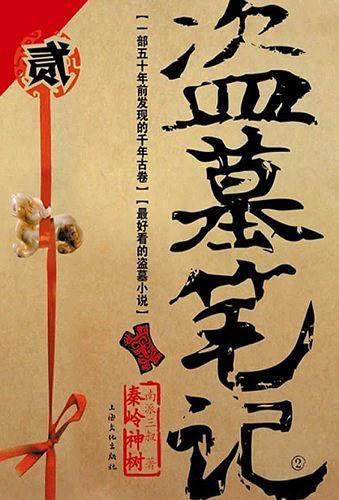 贰
盗墓笔记
②
【一部五十年前发现的千年古卷】【最好看的盗墓小说】
南派三叔 著
秦岭神树
上海文化出版社